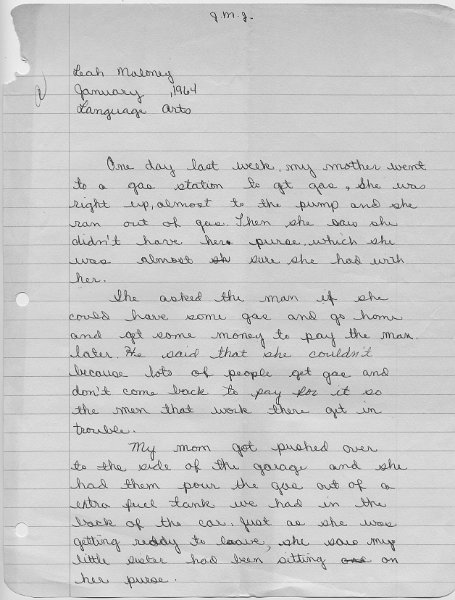 J.M.J.
Leah Maloney
January , 1964
Language Arts
One day last week, my mother went
to a gas station to get gas, She was
right up, almost to the pump and she
ran out of gas. Then she saw she
didn't have her purse, which she
was almost sh sure she had with
her.
She asked the man if she
could have some gas and go home
and get some money to pay the man
later. He said that she couldn't
because lots of people get gas and
don't come back to pay for it so
the men that work there get in
trouble.
My mom got pushed over
to the side of the garage and she
had them pour the gas out of a
extra fuel tank we had in the
back of the car. Just as she was
getting ready to leave, she saw my
little sister had been sitting on
her purse.